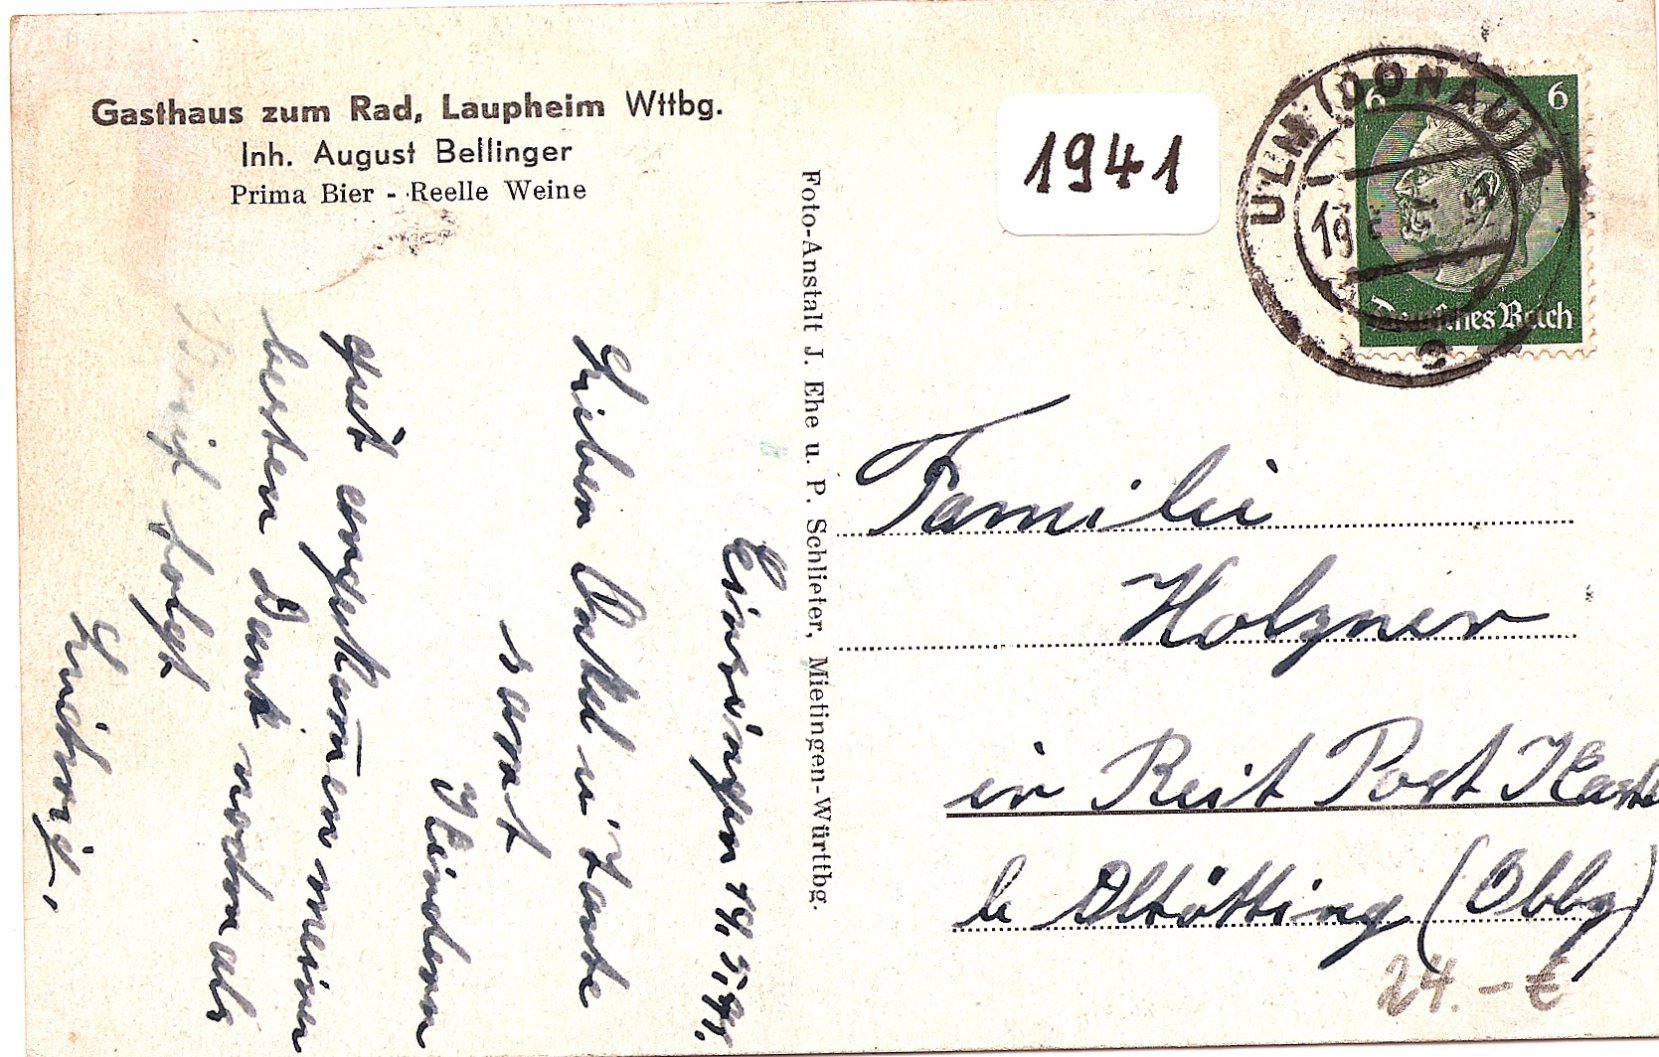 Gasthaus zum Rad, Laupheim Wttbg.
Inh. August Bellinger
Prima Bier - Reelle Weine
Foto-Anstalt J. Ehe u. P. Schlieter, Mietingen-Württbg.
1941
ULM (DONAU)
19
c
6 6
Deutsches Reich
Einsingen 14.5.41.
Lieben Onkel u Tante
samt
Kindern
gut angekommen meinen
besten Dank nochmals
Brief folgt
Familie
Holzner
in Reit Post Kastl
b Altötting (Obbg)
24.-€